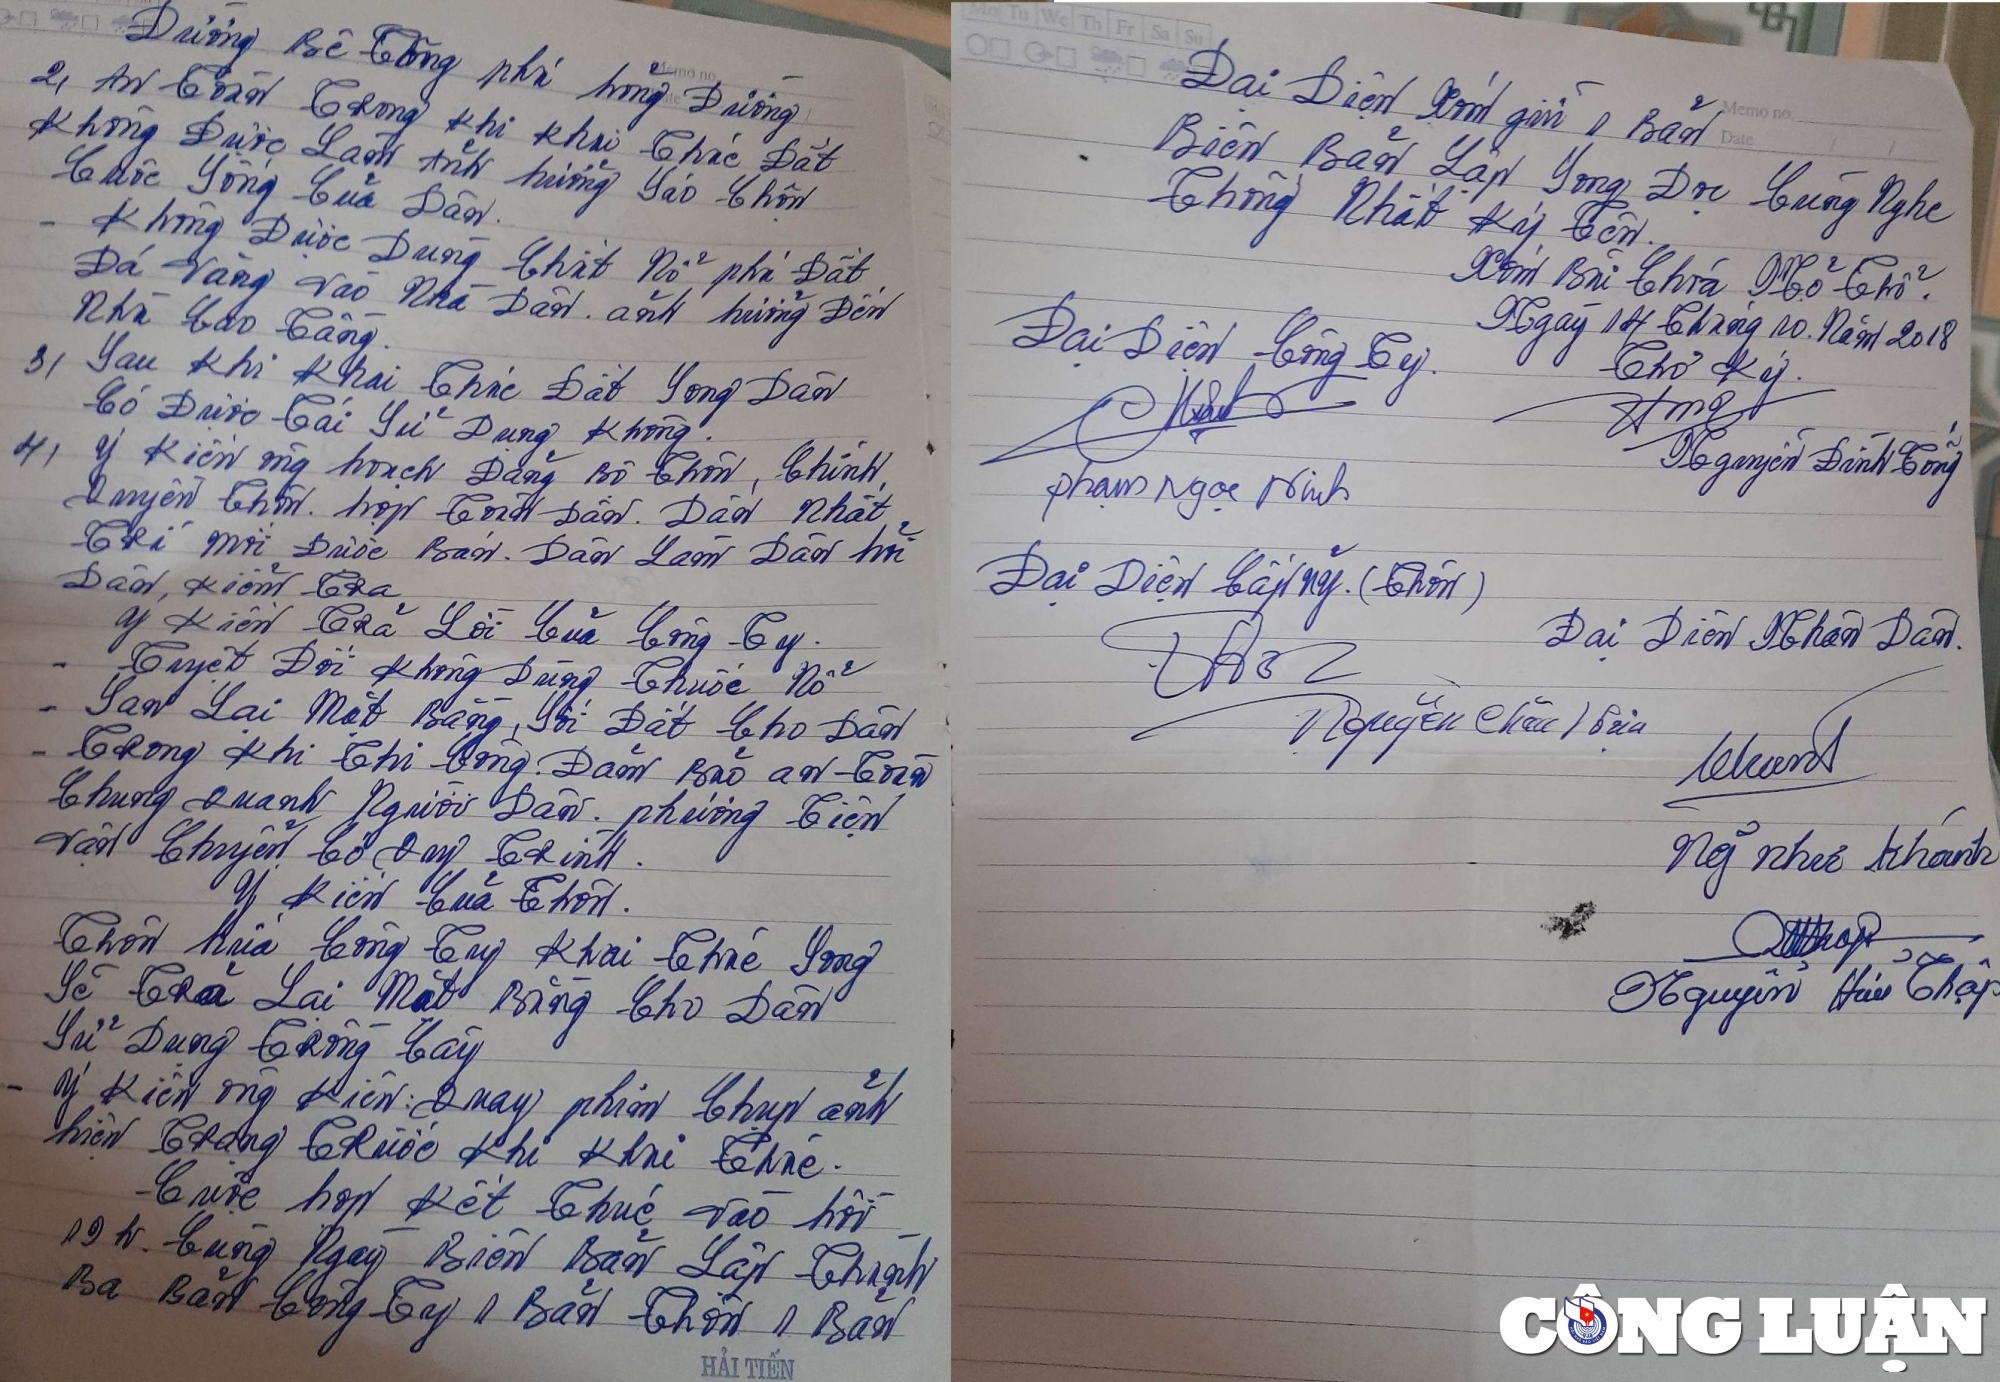 Đường Bê Tông phá hỏng Đường
2, An Toàn Trong khi khai Thác Đất
Không Được Làm Ảnh hưởng Sáo Chộn
Cuộc Sống Của Dân.
- Không Được Dùng Chất Nổ phá Đất
Đá văng vào Nhà Dân. ảnh hưởng Đến
Nhà Cao Tầng.
3, Sau Khi Khai Thác Đất Song Dân
Có Được Tái Sử Dụng Không.
4, Ý Kiến ông hoạch Đảng Bộ Thôn, Chính
Quyền Thôn. họp Toàn Dân. Dân Nhất
Trí mới Được Bán. Dân Làm Dân
Dân, Kiểm Tra
Ý Kiến Trả Lời Của Công Ty.
- Tuyệt Đối Không Dùng Thuốc Nổ
- San Lại Mặt Bằng, Đất Cho Dân
- Trong Khi Thi Công. Đảm Bảo an Toàn
Chung Quanh Người Dân. phương Tiện
vận Chuyển Có Quy Trình.
Ý Kiến Của Thôn.
Thôn hứa Công Ty Khai Thác Song
Sẽ Trả Lại Mặt Bằng Cho Dân
Sử Dụng Trồng Cây
- Ý Kiến ông Kiên: Quay phim Chụp ảnh
hiện Trạng Trước Khi Khai Thác.
Cuộc họp Kết Thúc vào hồi
19h. Cùng Ngày Biên Bản Lập Thành
Ba Bản Công Ty 1 Bản Thôn 1 Bản
HẢI TIẾN
Mo Tu We Th Fr Sa Su
Memo no.
Date
Đại Diện Xóm giữ 1 Bản
Biên Bản Lập Song Đọc Cùng Nghe
Thống Nhất Ký Tên.
Xóm Bãi Chữa Mỏ Thổ.
Ngày 14 Tháng 10. Năm 2018
Đại Diện Công Ty.
Thư Ký.
Nguyễn Đình Tổng
Phạm Ngọc Ninh
Đại Diện Cấp ủy. (Thôn)
Đại Diện Nhân Dân.
Nguyễn
Ng như Khánh
Nguyễn Hữu Thập
CÔNG LUẬN